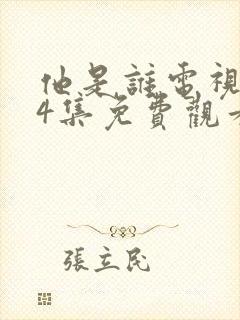 他是誰電視
4集免費觀
張立民